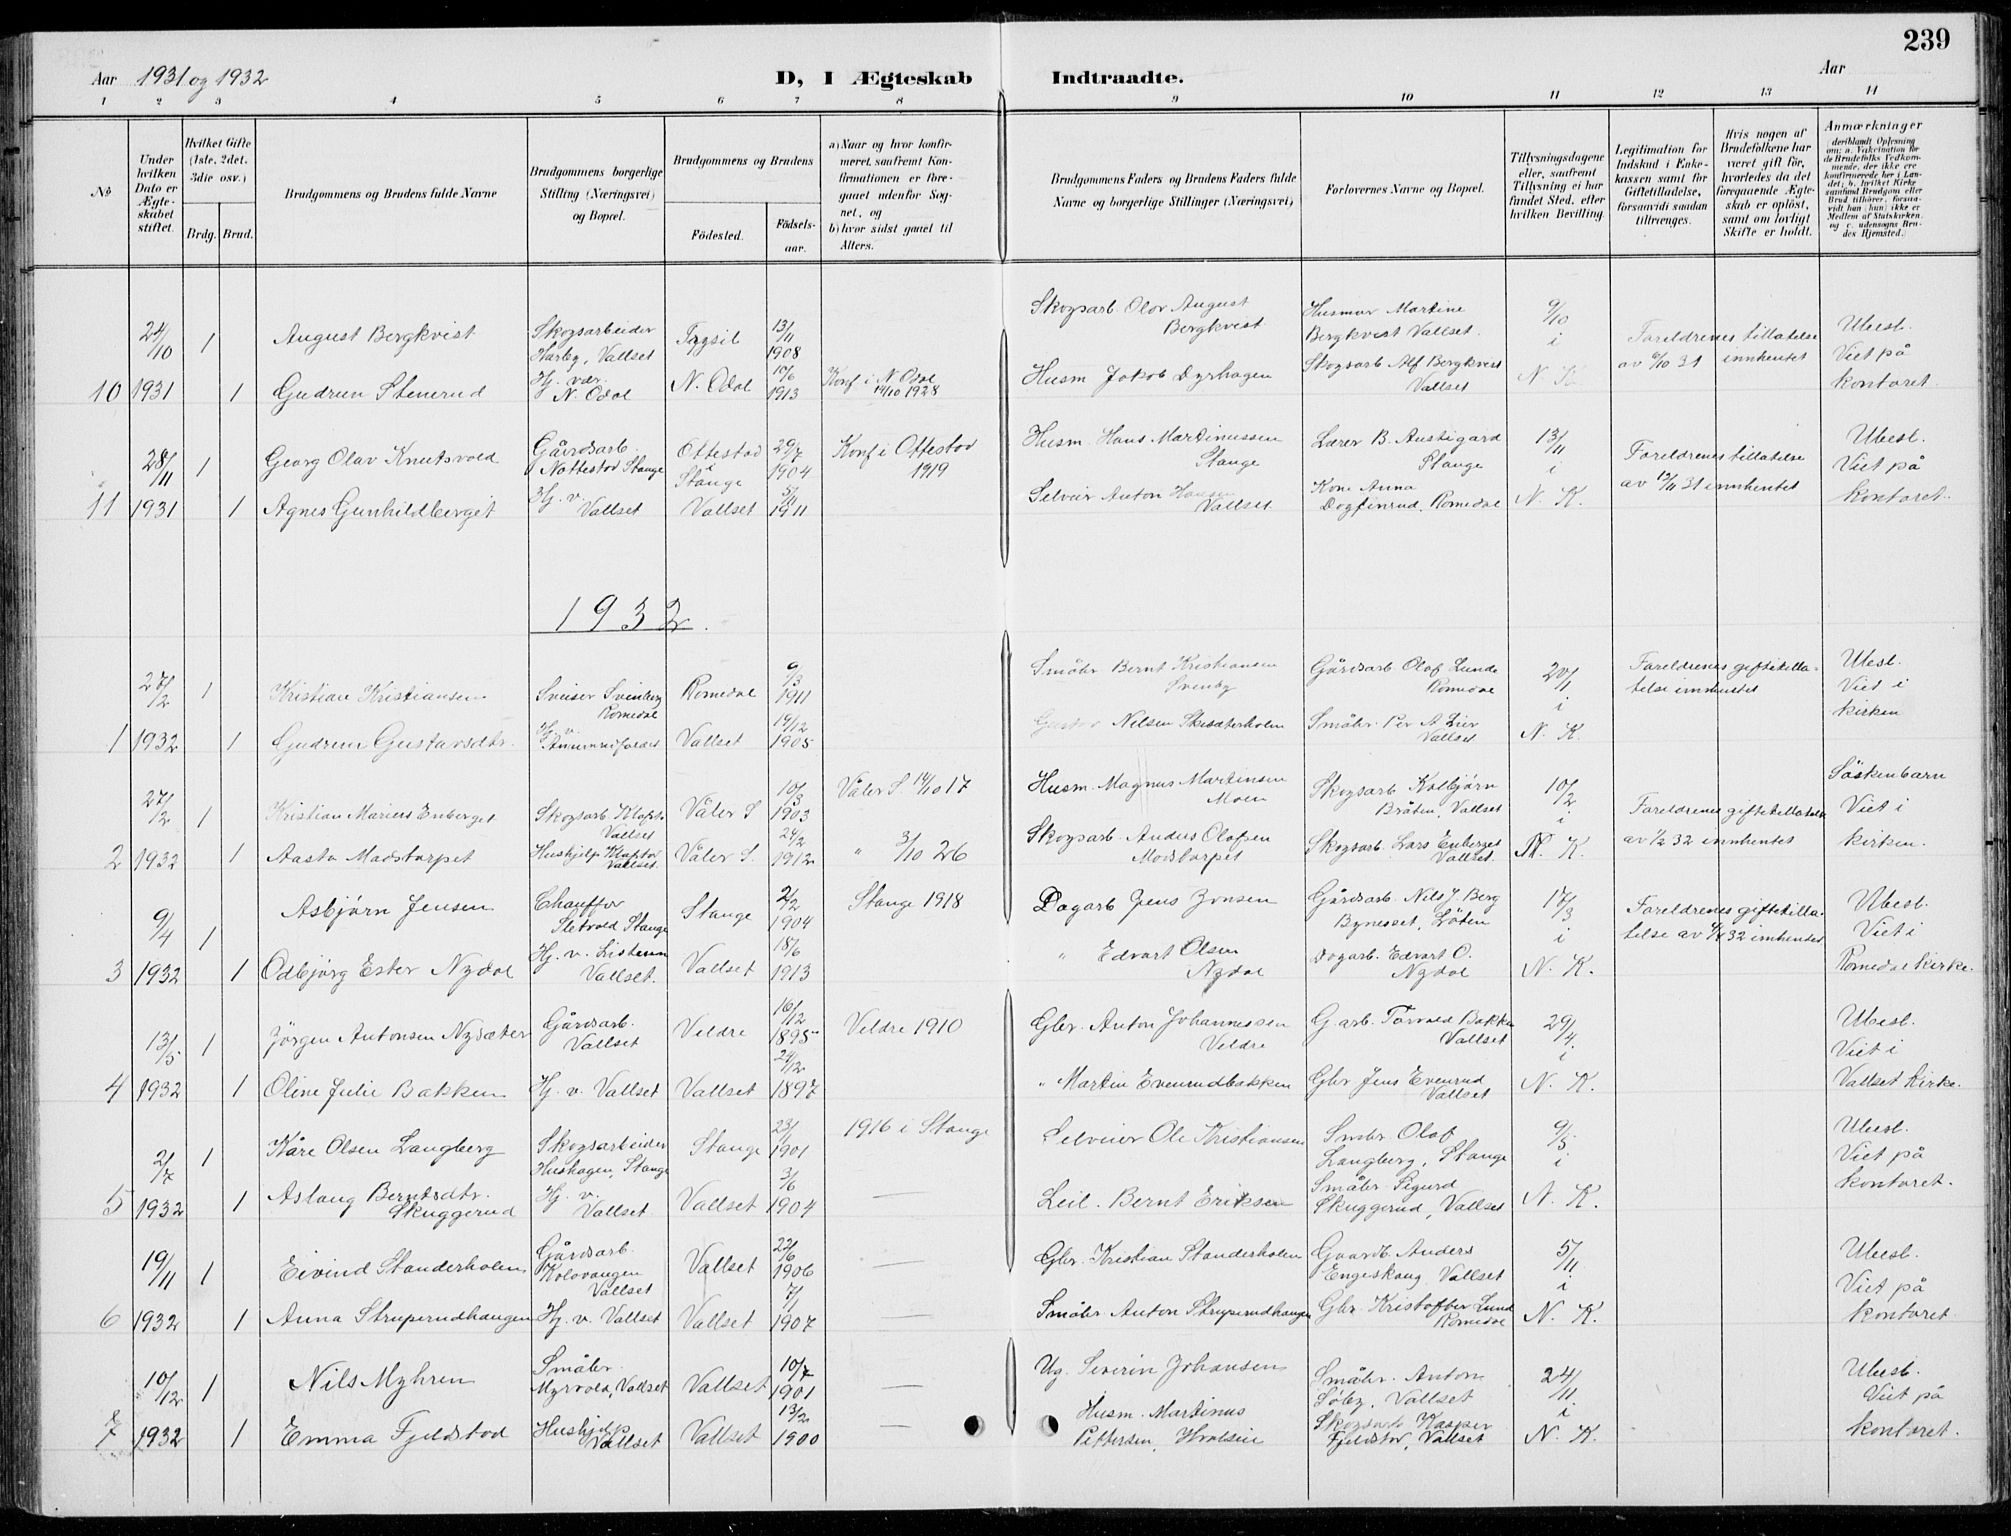 239
Aar 1931 og 1932
D, I Ægteskab Indtraadte.
Aar
1 2 3 4 5 6 7 8 9 10 11 12 13 14
No
Under hvilken Dato er Ægteskabet stiftet.
Hvilket Gifte (1ste, 2det, 3die osv.)
Brdg. Brud.
Brudgommens og Brudens fulde Navne
Brudgommens borgerlige Stilling (Næringsvei) og Bopæl.
Brudgommens og Brudens
Födested.
Födselsaar.
a) Naar og hvor konfirmeret, saafremt Konfirmationen er foregaaet udenfor Sognet, og
b) hvor sidst gaaet til Alters.
Brudgommens Faders og Brudens Faders fulde Navne og borgerlige Stillinger (Næringsvei)
Forlovernes Navne og Bopæl.
Tillysningsdagene eller, saafremt Tillysning ei har fundet Sted, efter hvilken Bevilling.
Legitimation for Indskud i Enkekassen samt for Giftetilladelse, forsaavidt saadan tiltrænges.
Hvis nogen af Brudefolkene har været gift för, hvorledes da det foregaaende Ægteskab er oplöst, samt om lovligt Skifte er holdt.
Anmærkninger
(deriblandt Oplysning om: a. Vakcination for de Brudefolks Vedkommende, der ikke ere konfirmerede her i Landet; b. hvilket Kirkesamfund Brudgom eller Brud tilhörer, forsaavidt han (hun) ikke er Medlem af Statskirken, og c. udensogns Brudes Hjemsted.)
24/10 1 August Bergkvist Skogsarbeider Harby, Vallset Trysil 13/11 1908 Skogsarb Olov August Bergkvist Husmor Martine Bergkvist Vallset 9/10 i Foreldrenes tillatelse Ubesl. Viet på
10 1931 1 Gudrun Stenerud Hj. vær. N. Odal N. Odal 10/6 1913 Konf i N Odal 14/10 1928 Husm Jakob Dyrhagen Skogsarb Alf Bergkvist Vallset N. K. av 6/10 31 innhentet kontoret.
28/11 1 Georg Olav Knutsvold Gårdsarb. Nøttestad Stange Ottestad i Stange 29/7 1904 Konf i Ottestad 1919 Husm. Hans Martinussen Stange Lærer B. Austigard Stange 13/11 i Foreldrenes tillatelse Ubesl. Viet på
11 1931 1 Agnes Gunhildberget Hj. v. Vallset Vallset 5/11 1911 Selveir Anton Hansen Vallset Kone Anna Dogfinrud, Romedal N. K. av 12/11 31 innhentet kontoret.
1932.
27/2 1 Kristian Kristiansen Sveiser Svenby Romedal Romedal 9/3 1911 Småbr Bernt Kristiansen Svenby Gårdsarb Olof Lunde Romedal 20/1 i Foreldrenes giftetillatelse innhentet Ubesl. Viet i
1 1932 1 Gudrun Gustavsdtr. Hj. v. Vallset 14/12 1905 Gustav Nilsen Skisæterholen Småbr. Per A Lier Vallset N. K. kirken
27/2 1 Kristian Marius Enberget Skogsarb Kloftr. Vallset Våler S 10/3 1903 Våler S. 14/10 17 Husm. Magnus Martinsen Moen Skogsarb Kolbjørn Bråten, Vallset 10/2 i Foreldrenes giftetillatelse Søskenbarn Viet i
2 1932 1 Aasta Madstorpet Hushjelp Vallset. Våler S. 24/2 1912 " 3/10 26 Skogsarb. Anders Olofsen Madstorpet Skogsarb. Lars Enberget Vallset. N. K. av 1/2 32 innhentet kirken.
9/4 1 Asbjørn Jensen Chauffør Sletvold Stange Stange 2/2 1904 Stange 1918 Dagarb Jens Jonsen Gårdsarb. Nils J. Berg Bynesset, Løten 17/3 i Foreldrenes giftetilla- Ubesl. Viet i
3 1932 1 Odbjørg Ester Nydal Hj. v. Vallset. Vallset 18/6 1913 " Edvart Olsen Nydal Dagarb. Edvart O. Nydal N. K. telse av 4/4 32 innhentet Romedal kirke.
13/5 1 Jørgen Antonsen Nysæter Gårdsarb. Vallset Veldre 16/12 1895 Veldre 1910 Gbr. Anton Johannessen Veldre G. arb. Torvald Bakken Vallset 29/4. i Ubesl. Viet i
4 1932 1 Oline Julie Bakken Hj. v. Vallset Vallset 24/12 1897 " Martin Evenrudbakken Gbr Jens Evenrud Vallset N. K. Vallset kirke.
2/7 1 Kåre Olsen Langberg Skogsarbeider Hushagen, Stange Stange 23/1 1901 1916 i Stange Selveier Ole Kristiansen Småbr Olof Langberg, Stange 9/5 i Ubesl. Viet på
5 1932 1 Aslaug Berntsdtr. Skuggerud Hj. v. Vallset. Vallset 3/6 1904 — Leil. Bernt Eriksen Småbr. Sigurd Skuggerud, Vallset N. K. kontoret.
19/11 1 Eivind Standerholen Gårdsarb. Kolovangen Vallset Vallset 22/6 1906 Gbr. Kristian Standerholen Gaardb. Anders Engeskaug, Vallset 5/11 i Ubesl. Viet på
6 1932 1 Anna Struperudhaugen Hj. v. Vallset Vallset 7/1 1907 — Småbr Anton Struperudhaugen Gbr. Kristoffer Lund Romedal N. K. kontoret.
10/12 1 Nils Myhren Småbr. Myrvold, Vallset Vallset 10/7 1901 — Ug. Severin Johansen Småbr. Anton Søby, Vallset 24/11 i Ubesl. Viet på
7 1932 1 Emma Fjeldstad Hushjelp Vallset Vallset 13/2 1900 — Husm. Martinus Pettersen, Skogsarb Kasper Fjeldstad, Vallset N. K. kontoret.